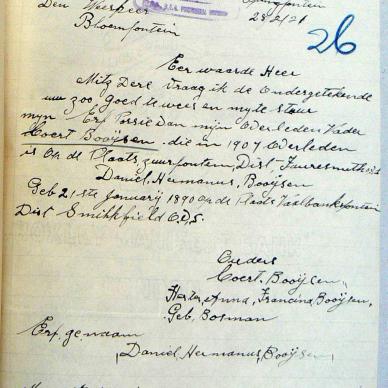 Den Weesheer
Bloemfontein
28/2/21
26
Eer waarde Heer
Mitz Dese Vraag ik de Ondergetekende
uw zoo, goed te wees en myte stour
myn Erf Posie van mijn Overleden Vader
Coert Booÿsen die in 1907 Overleden
is Op de Plaats, zuurfontein, Dist, Fauresmith O.V.S
Daniel, Hermanus, Booÿsen
Geb 21-ste January 1890 op de Plaats Vaalbankfontein
Dist Smithfield O.V.S.
Ouders
Coert. Booÿsen,
Hester, Anna, Francina, Booÿsen,
Geb. Bosman
Erf, genaam
Daniel, Hermanus, Booÿsen